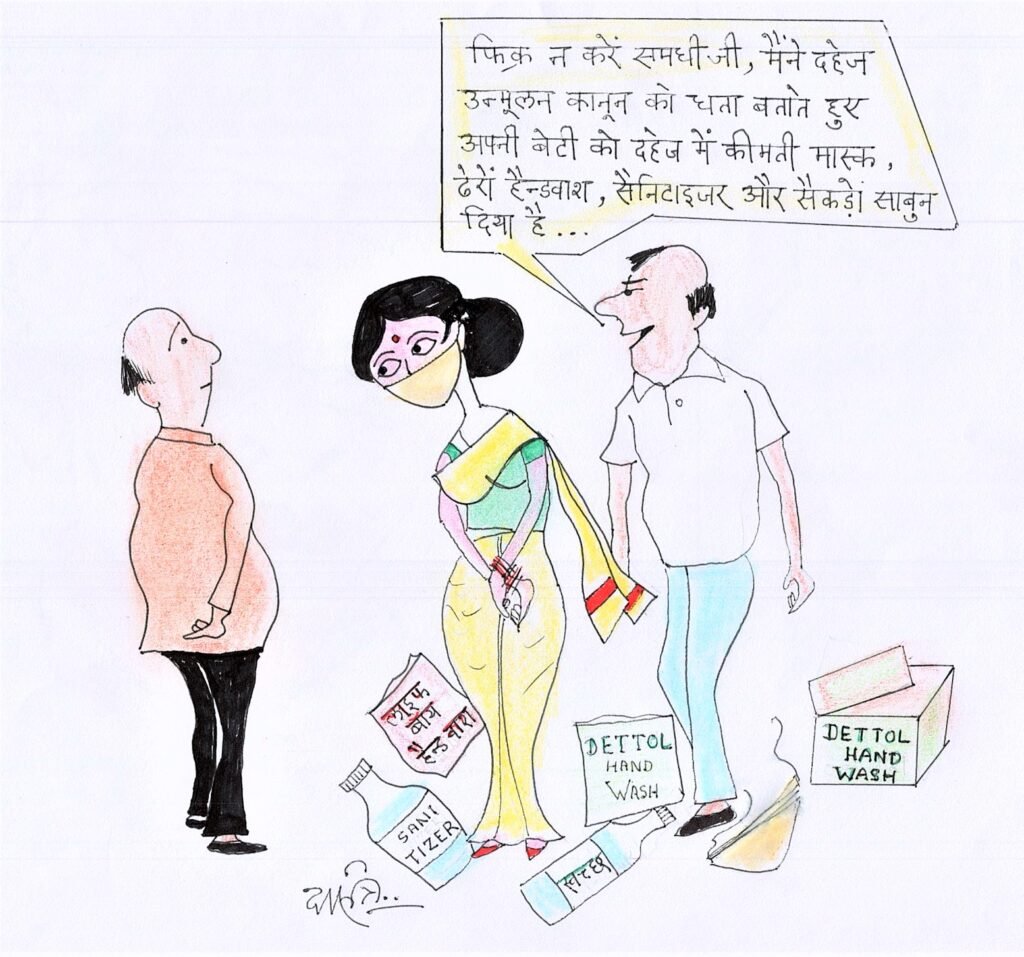 फिक्र न करें समधीजी, मैंने दहेज
उन्मूलन कानून को धता बताते हुए
अपनी बेटी को दहेज में कीमती मास्क,
ढेरों हैन्डवाश, सैनिटाइजर और सैकड़ों साबुन
दिया है...
लाइफ
बाय
हैन्ड वाश
SANI
TIZER
DETTOL
HAND
WASH
DETTOL
HAND
WASH